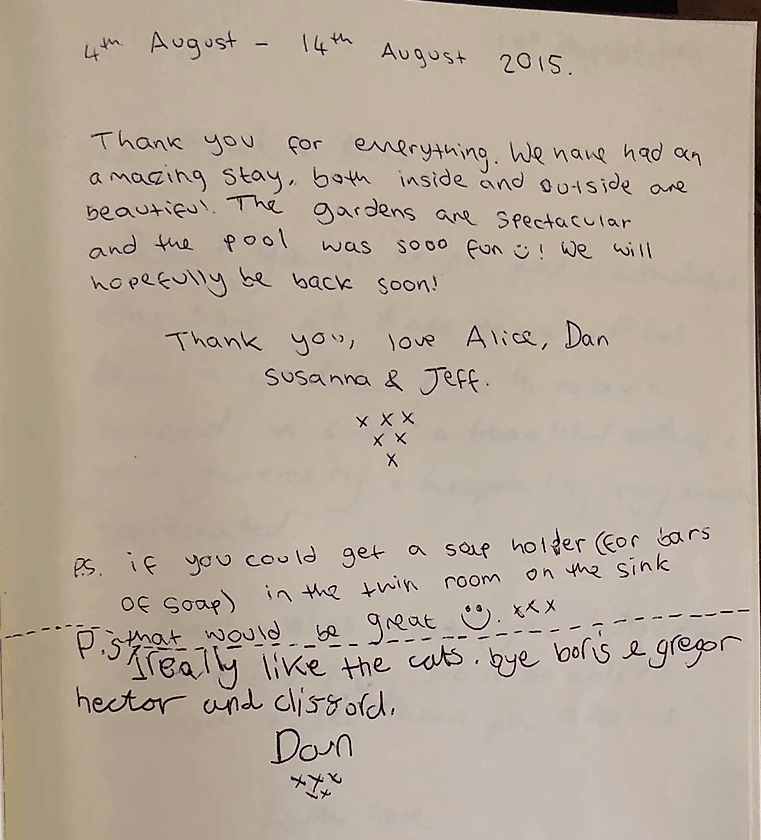 4th August - 14th August 2015.
Thank you for everything. We have had an
amazing stay, both inside and outside are
beautiful. The gardens are spectacular
and the pool was sooo fun ☺! We will
hopefully be back soon!
Thank you, love Alice, Dan
Susanna & Jeff.
x x x
x x
x
P.S. if you could get a soap holder (for bars
of soap) in the twin room on the sink
that would be great ☺. xxx
P.S I really like the cats. bye boris & gregor
hector and clifford.
Dan
xxx
xx